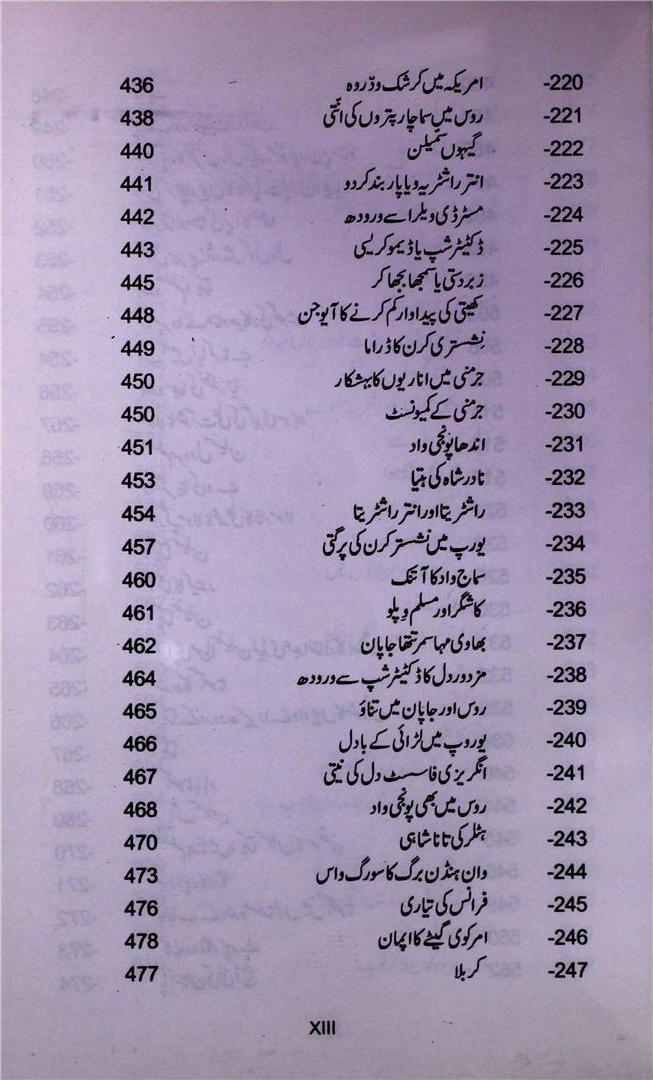 220- امریکہ میں کرشک ودّروہ 436
221- روس میں سماچار پتروں کی انّتی 438
222- گیہوں سمّیلن 440
223- انتر راشٹریہ ویاپار بند کردو 441
224- مسٹر ڈی ویلرا سے ورودھ 442
225- ڈکٹیٹر شپ یا ڈیموکریسی 443
226- زبردستی یا سمجھا بجھا کر 445
227- کھیتی کی پیداوار کم کرنے کا آیوجن 448
228- نشستری کرن کا ڈراما 449
229- جرمنی میں اناریوں کا بہشکار 450
230- جرمنی کے کمیونسٹ 450
231- اندھا پونجی واد 451
232- نادر شاہ کی ہتیا 453
233- راشٹریتا اور انتر راشٹریتا 454
234- یورپ میں نشستر کرن کی پرگتی 457
235- سماج واد کا آتنک 460
236- کاشگر اور مسلم وپلو 461
237- بھاوی مہاسمر تتھا جاپان 462
238- مزدور دل کا ڈکٹیٹر شپ سے ورودھ 464
239- روس اور جاپان میں تناؤ 465
240- یوروپ میں لڑائی کے بادل 466
241- انگریزی فاسسٹ دل کی نیتی 467
242- روس میں بھی پونجی واد 468
243- ہٹلر کی تاناشاہی 470
244- وان ہنڈن برگ کا سورگ واس 473
245- فرانس کی تیاری 476
246- امر کوی گیٹے کا اپمان 478
247- کربلا 477
XIII